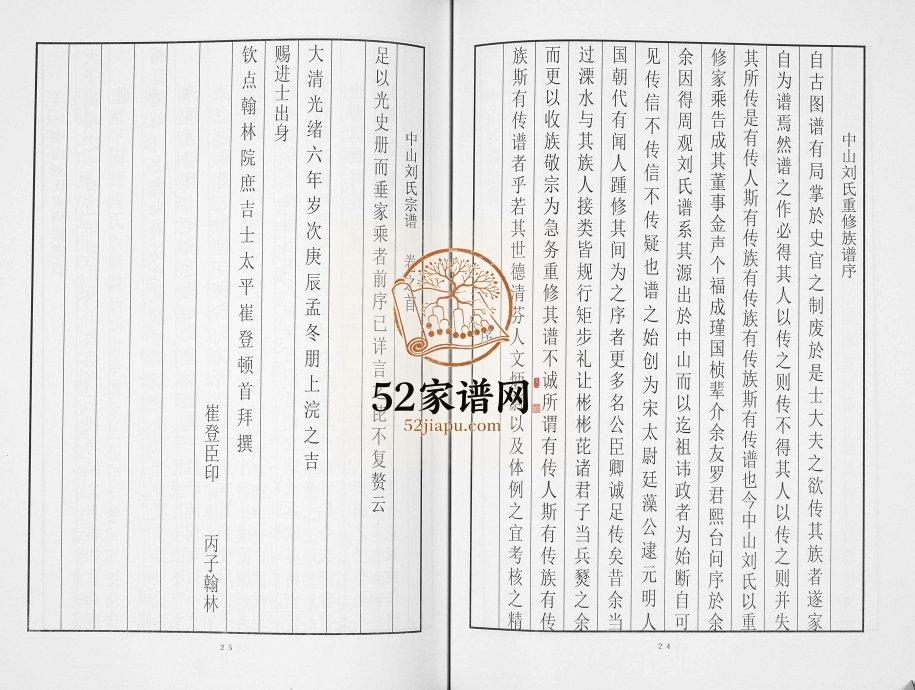 中山刘氏重修族谱序
自古图谱有局掌於史官之制废於是士大夫之欲传其族者遂家
自为谱焉然谱之作必得其人以传之则传不得其人以传之则并失
其所传是有传人斯有传族有传族斯有传谱也今中山刘氏以重
修家乘告成其董事金声个福成瑾国桢辈介余友罗君熙台问序於余
余因得周观刘氏谱系其源出於中山而以迄祖讳政者为始断自可
见传信不传信不传疑也谱之始创为宋太尉廷藻公逮元明人
国朝代有闻人踵修其间为之序者更多名公臣卿诚足传矣昔余当
过溧水与其族人接类皆规行矩步礼让彬彬茈诸君子当兵燹之余
而更以收族敬宗为急务重修其谱不诚所谓有传人斯有传族有传
族斯有传谱者乎若其世德清芬人文以及体例之宜考核之精
24
中山刘氏宗谱 卷之首
序
足以光史册而垂家乘者前序已详言茈不复赘云
大清光绪六年岁次庚辰孟冬朋上浣之吉
赐进士出身
钦点翰林院庶吉士太平崔登顿首拜撰
崔登臣印 丙子翰林
25
52家谱网
52jiapu.com